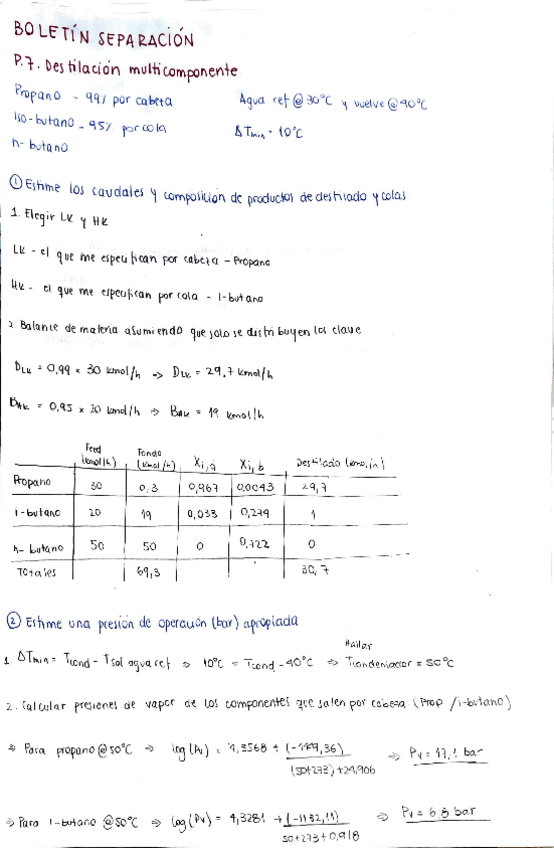 BOLETÍN SEPARACIÓN
P.7. Destilación multicomponente
Propano - 99% por cabeza
Agua ref @ 30°C y vuelve @ 40°C
Iso-butano - 95% por cola
ΔTmin - 10°C
n-butano
① Estime los caudales y composición de productos de destilado y colas
1. Elegir LK y HK
LK - el que me especifican por cabeza - Propano
HK - el que me especifican por cola - i-butano
2. Balance de materia asumiendo que solo se distribuyen los clave
DLK = 0,99 × 30 kmol/h → DLK = 29,7 kmol/h
BHK = 0,95 × 20 kmol/h ⇒ BHK = 19 kmol/h
Feed (kmol/h) Fondo (kmol/h) Xi,d Xi,b Destilado (kmol/h)
Propano 30 0,3 0,967 0,0043 29,7
i-butano 20 19 0,033 0,274 1
n-butano 50 50 0 0,722 0
Totales 69,3 30,7
② Estime una presión de operación (bar) apropiada
Hallar
1. ΔTmin = Tcond - Tsal agua ref ⇒ 10°C = Tcond - 40°C ⇒ Tcondensador = 50°C
2. Calcular presiones de vapor de los componentes que salen por cabeza (Prop / i-butano)
⇒ Para propano @ 50°C → log(Pv) = 4,3568 + (-1149,36) / (50+273)+24,906 ⇒ Pv = 17,1 bar
⇒ Para i-butano @ 50°C ⇒ log(Pv) = 4,3281 + (-1132,11) / 50+273+0,918 ⇒ Pv = 6,8 bar